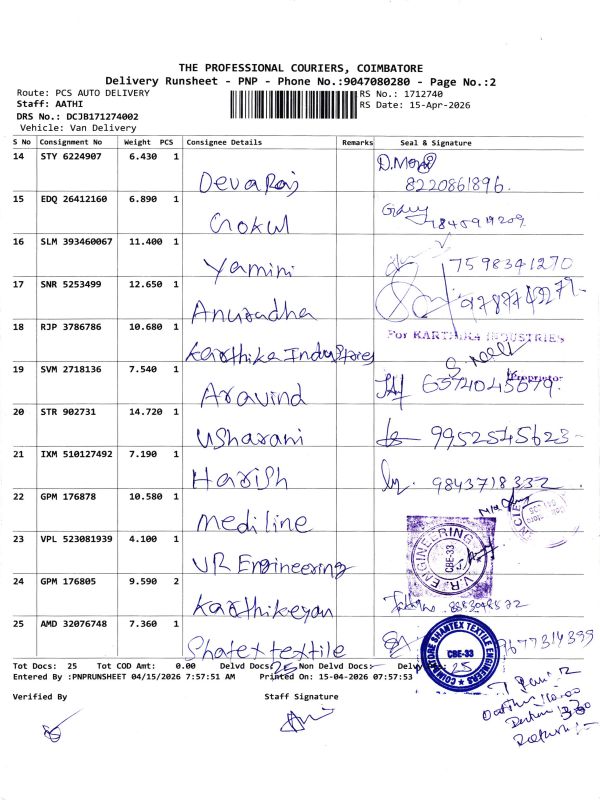 THE PROFESSIONAL COURIERS, COIMBATORE
Delivery Runsheet - PNP - Phone No.:9047080280 - Page No.:2
Route: PCS AUTO DELIVERY RS No.: 1712740
Staff: AATHI RS Date: 15-Apr-2026
DRS No.: DCJB171274002
Vehicle: Van Delivery
S No Consignment No Weight PCS Consignee Details Remarks Seal & Signature
14 STY 6224907 6.430 1 Devaraj 8220861896.
15 EDQ 26412160 6.890 1 Gokul
16 SLM 393460067 11.400 1 Yamini 7598341270
17 SNR 5253499 12.650 1 Anuradha
18 RJP 3786786 10.680 1 Karthika Industries For KARTHIKA INDUSTRIES
19 SVM 2718136 7.540 1 Aravind Proprietor
20 STR 902731 14.720 1 Usharani 9952545623
21 IXM 510127492 7.190 1 Harish 9843718332
22 GPM 176878 10.580 1 Mediline
23 VPL 523081939 4.100 1 VR Engineering V.R. ENGINEERING CBE-33
24 GPM 176805 9.590 2 Karthikeyan
25 AMD 32076748 7.360 1 Shatex textile 9677314399
COIMBATORE SHANTEX TEXTILE ENGINEERS CBE-33
Tot Docs: 25 Tot COD Amt: 0.00 Delvd Docs: 25 Non Delvd Docs: 25
Entered By :PNPRUNSHEET 04/15/2026 7:57:51 AM Printed On: 15-04-2026 07:57:53
Verified By Staff Signature